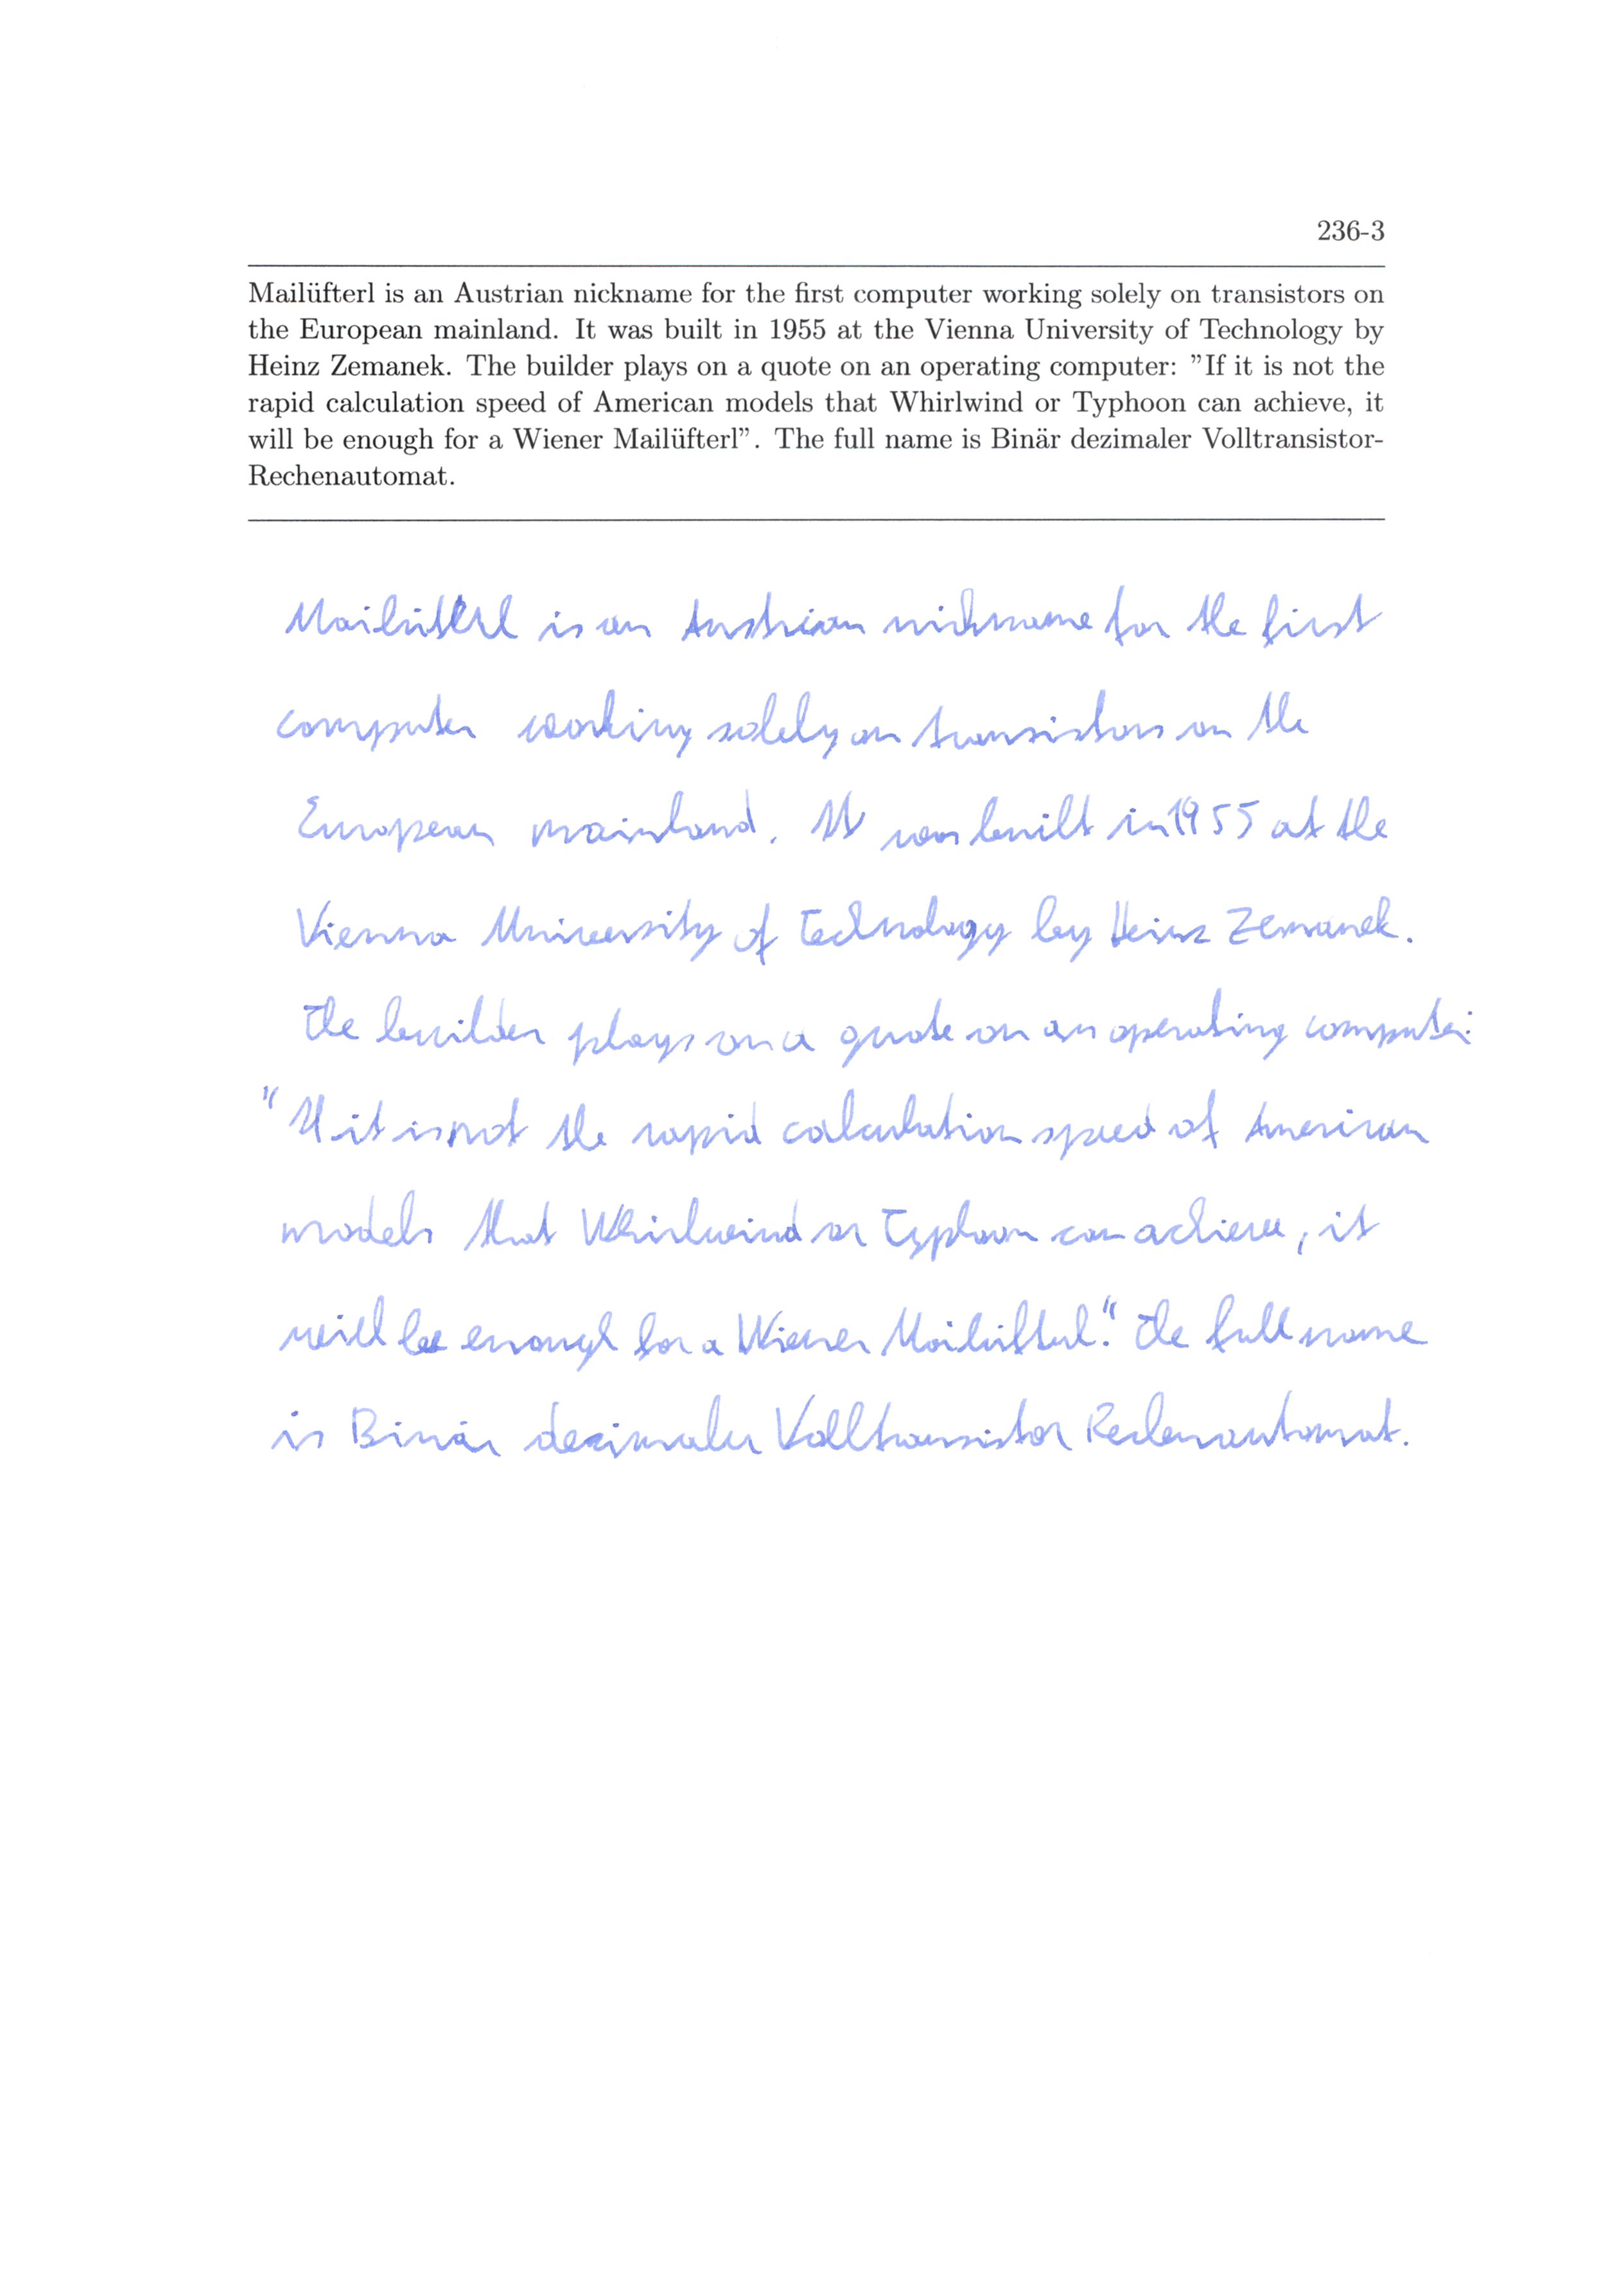 236-3
Mailüfterl is an Austrian nickname for the first computer working solely on transistors on
the European mainland. It was built in 1955 at the Vienna University of Technology by
Heinz Zemanek. The builder plays on a quote on an operating computer: ”If it is not the
rapid calculation speed of American models that Whirlwind or Typhoon can achieve, it
will be enough for a Wiener Mailüfterl”. The full name is Binär dezimaler Volltransistor-
Rechenautomat.
Mailüfterl is an Austrian nickname for the first
computer working solely on transistors on the
European mainland. It was built in 1955 at the
Vienna University of Technology by Heinz Zemanek.
The builder plays on a quote on an operating computer:
"If it is not the rapid calculation speed of American
models that Whirlwind or Typhoon can achieve, it
will be enough for a Wiener Mailüfterl." The full name
is Binär dezimaler Volltransistor Rechenautomat.